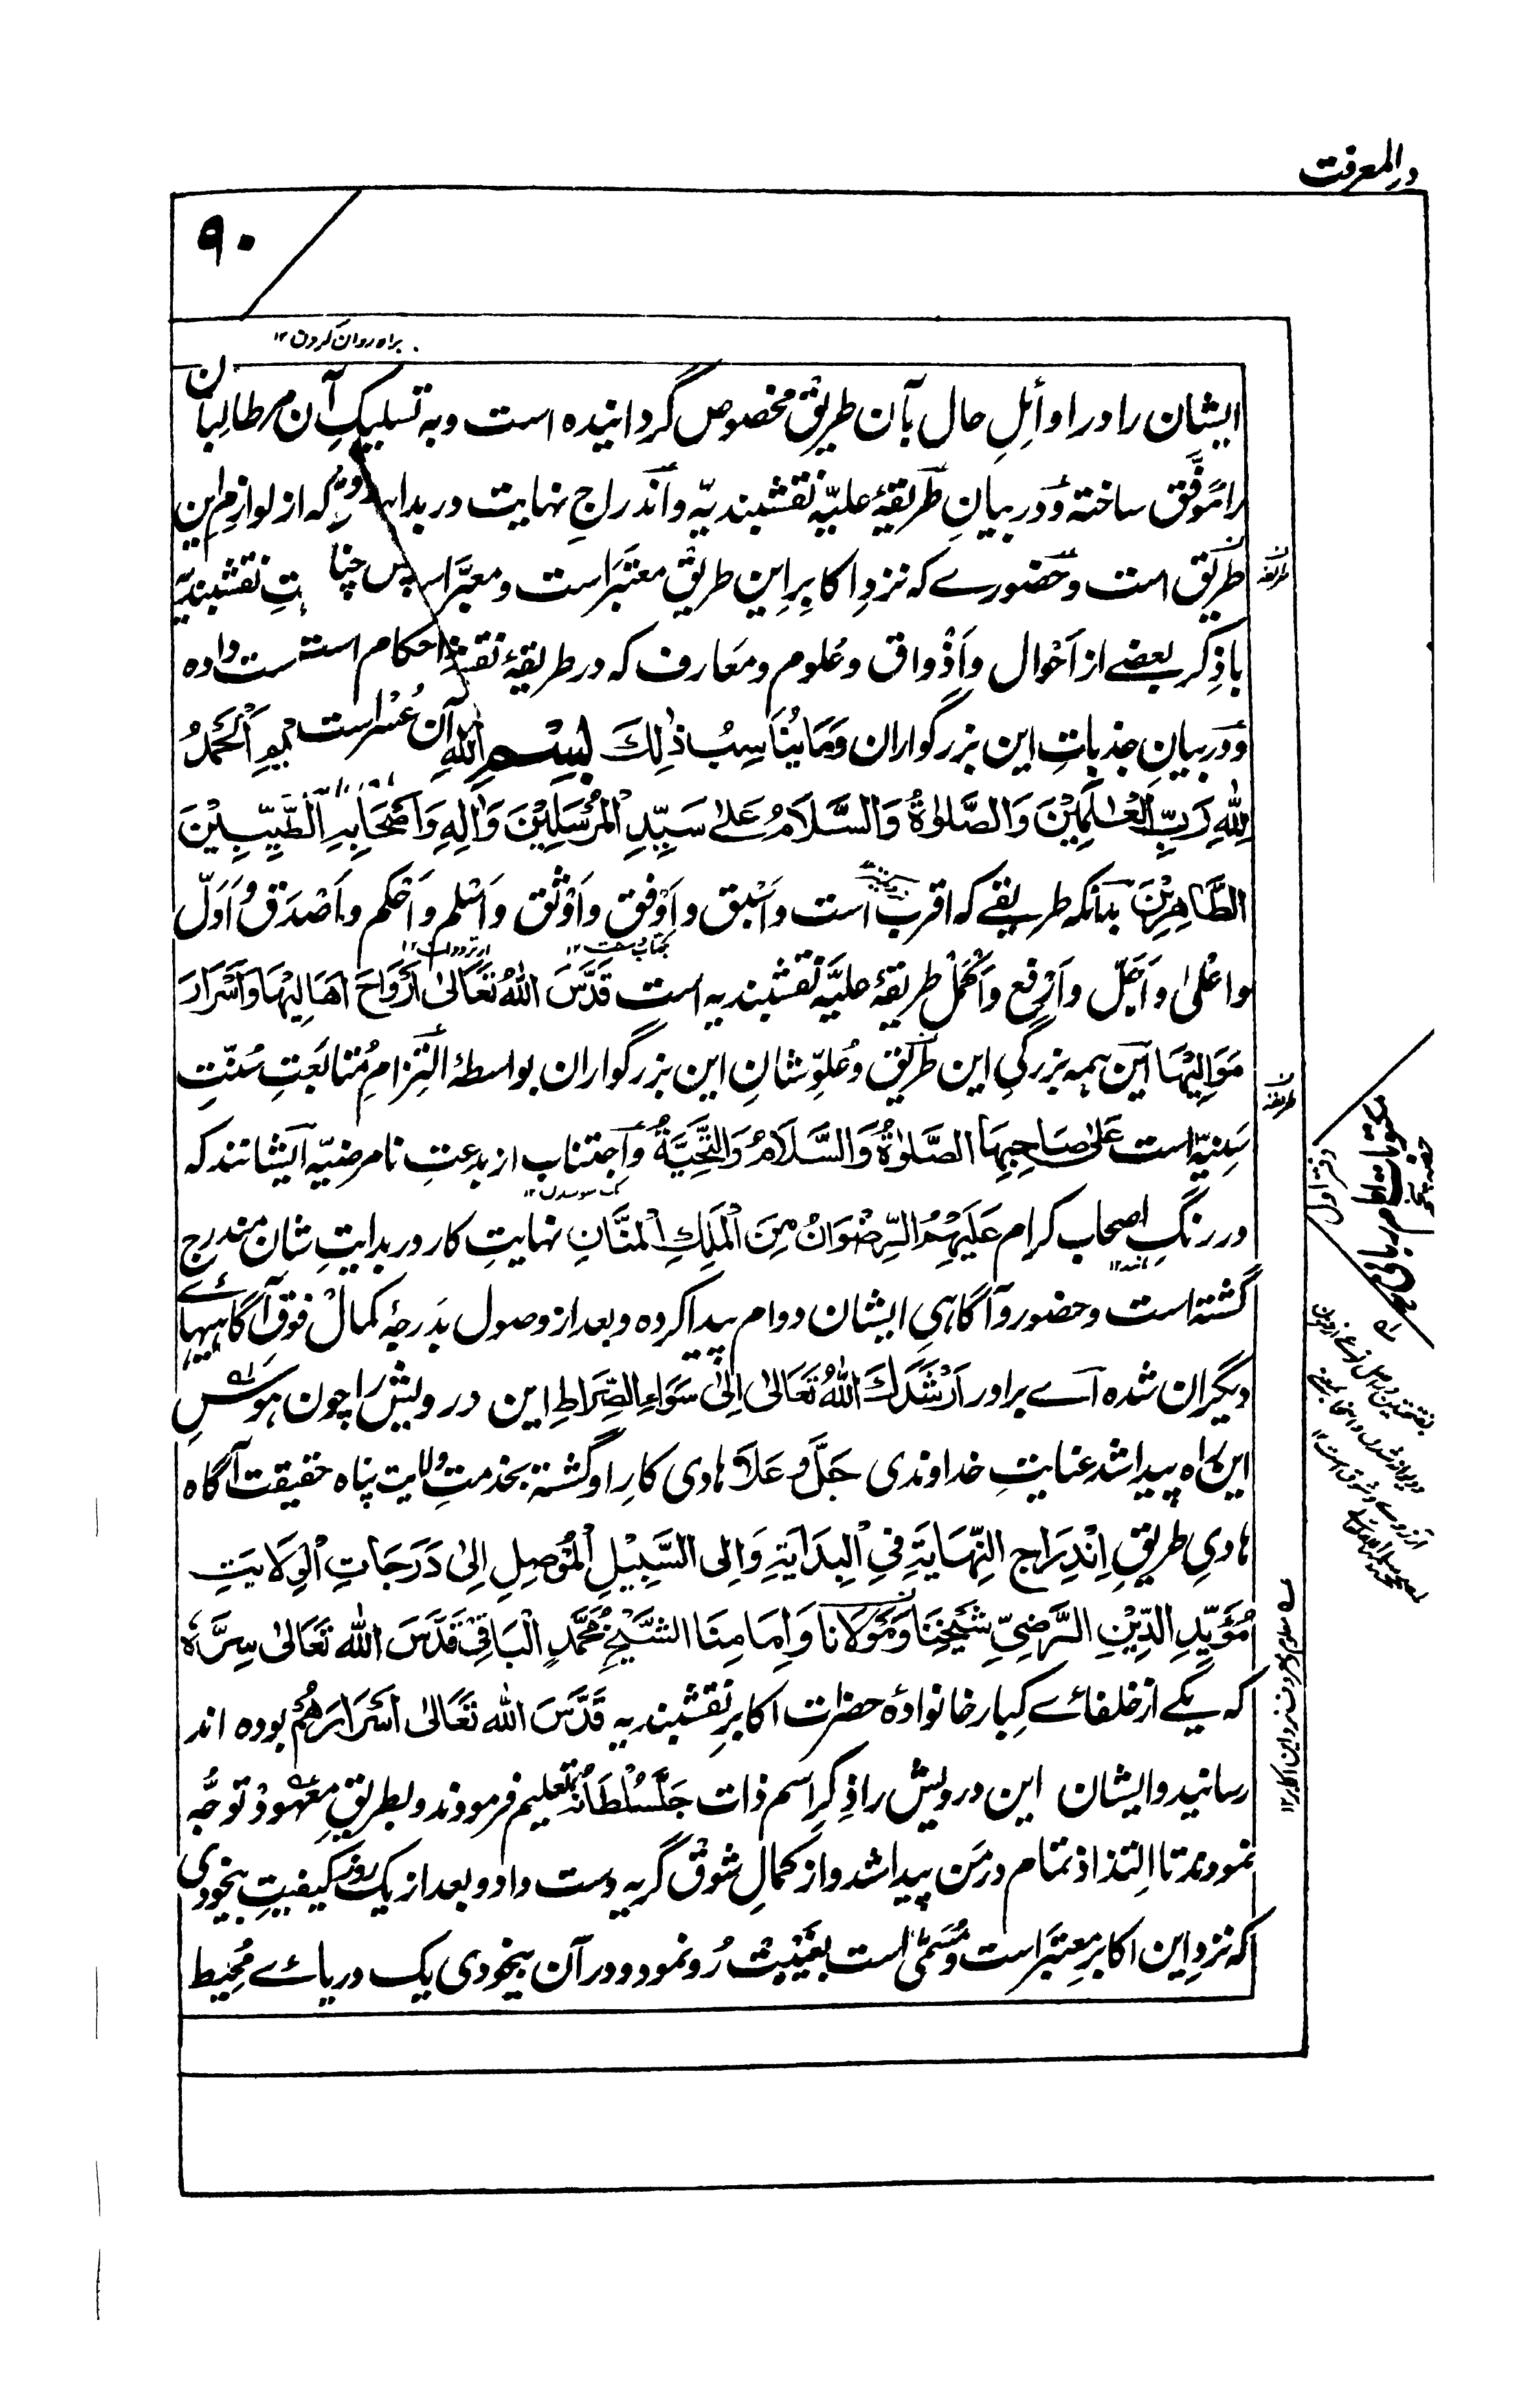 در المعرفت
۹۰
براه روان کردن ۱۲
ایشان را در اوائلِ حال بآن طریق مخصوص گردانیده است و به تسلیکِ آن مر طالبان
را مُوَفَّق ساخته و در بیانِ طریقهٔ علیّه نقشبندیّه و اندراجِ نهایت در بدا که از لوازمِ این
طریق است و حضورے که نزدِ اکابرِ این طریق معتبر است و معبَّر پس چنا تِ نقشبندیّه
با ذِکرِ بعضے از اَحْوال و اَذْواق و عُلوم و مَعارف که در طریقهٔ نقشـ احکام است ست داده
و در بیانِ جذباتِ این بزرگواران وَمَا یُنَاسِبُ ذٰلِکَ بِسْمِ اللهِ آن عُسْر است اَلْحَمْدُ
لِلّٰهِ رَبِّ الْعٰلَمِیْنَ وَالصَّلٰوةُ وَالسَّلَامُ عَلٰی سَیِّدِ الْمُرْسَلِیْنَ وَاٰلِهِ وَاَصْحَابِهِ الطَّیِّبِیْنَ
الطَّاهِرِیْنَ بدانکه طریقے که اقرب است و اَسْبق و اَوْفق و اَوْثق و اَسْلم و اَحْکم و اَصْدَق و اَوَلّ
و اعْلیٰ و اَجَلّ و اَرْفع و اَکْمل طریقهٔ علیَّه نقشبندیه است قَدَّسَ اللهُ تَعَالٰی اَرْوَاحَ اَهَالِیْهَا وَاَسْرَارَ
مَوَالِیْهَا این همه بزرگیِ این طریق و عُلوِّ شانِ این بزرگواران بواسطهٔ التزامِ مُتابَعتِ سُنّتِ
سَنِیّه است عَلٰی صَاحِبِهَا الصَّلٰوةُ وَالسَّلَامُ وَالتَّحِیَّةُ و اجتناب از بدعتِ نامرضیّه ایشانند که
در رنگِ اصحاب کرام عَلَیْهِمُ الرِّضْوَانُ مِنَ الْمَلِکِ الْمَنَّانِ نهایتِ کار در بدایتِ شان مندرج
گشته است و حضور و آگاهیِ ایشان دوام پیدا کرده و بعد از وصول بدَرجهٔ کمال فوقِ آگاهیهائے
دیگران شده اے برادر اَرْشَدَکَ اللهُ تَعَالٰی اِلٰی سَوَاءِ الصِّرَاطِ این درویش را چون هوسِ
این راه پیدا شد عنایتِ خداوندی جَلَّ و عَلَا هادی کارِ او گشته بخدمتِ ولایت پناه حقیقت آگاه
هادیِ طریقِ اِنْدِرَاجِ النِّهَایَةِ فِی الْبِدَایَةِ وَاِلی السَّبِیْلِ الْمُوْصِلِ اِلٰی دَرَجَاتِ الْوِلَایَتِ
مُؤَیِّدِ الدِّیْنِ الرَّضِیِّ شَیْخِنَا وَمَوْلَانَا وَاِمَامِنَا الشَّیْخِ مُحَمَّدِ الْبَاقِیْ قَدَّسَ اللهُ تَعَالٰی سِرَّهٗ
که یکے از خلفائے کِبار خانوادهٔ حضرات اکابرِ نقشبندیه قَدَّسَ اللهُ تَعَالٰی اَسْرَارَهُمْ بوده اند
رسانید و ایشان این درویش را ذِکرِ اسم ذات جَلَّ سُلْطَانُهٗ تعلیم فرمودند و بطریقِ معهود توجُّه
نمودند تا التذاذ تمام در من پیدا شد و از کمالِ شوق گریه دست داد و بعد از یک روز کیفیتِ بیخودی
که نزدِ این اکابر معتبر است و مُسَمّٰی است بغَیْبَت رُو نمود و در آن بیخودی یک دریائے مُحِیط
طریقه
طریقه
دفتر اول
مکتوبات امام ربانی